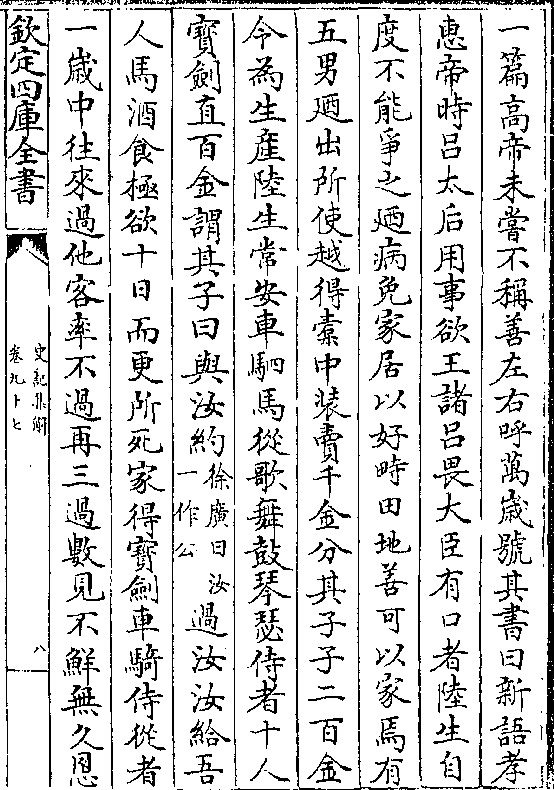 一篇髙帝未嘗不稱善左右呼萬歲號其書曰新語孝
惠帝時吕太后用事欲王諸吕畏大臣有口者陸生自
度不能爭之廼病免家居以好畤田地善可以家焉有
五男廼出所使越得槖中裝賣千金分其子子二百金
令為生產陸生常安車駟馬從歌舞鼓琴瑟侍者十人
寳劍直百金謂其子曰與汝約徐廣曰汝一作公過汝汝給吾
人馬酒食極欲十日而更所死家得寳劍車騎侍從者
一歳中往來過他客率不過再三過數見不鮮無久慁
欽定四庫全書
史記集解
卷九十七
八